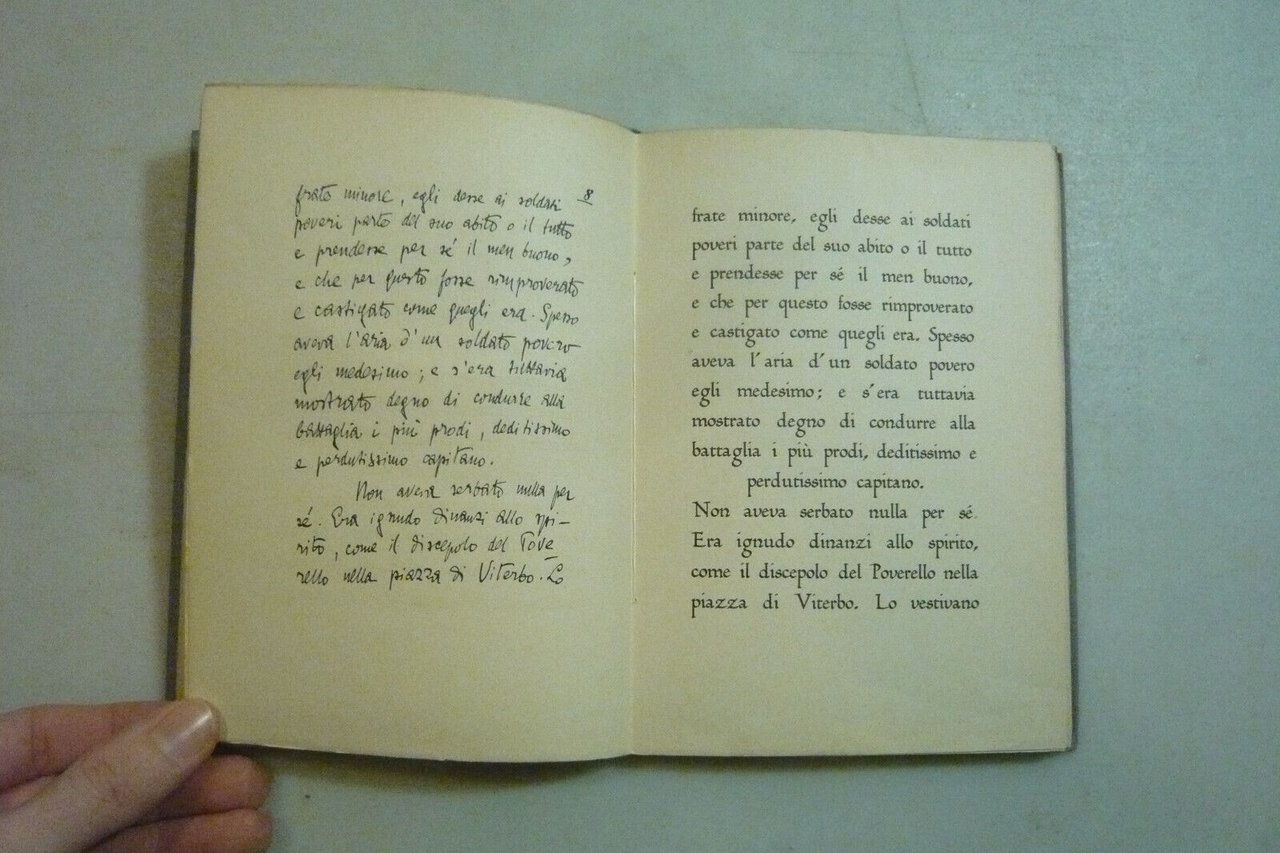 frate minore, egli desse ai soldati 8
poveri parte del suo abito o il tutto
e prendesse per sé il men buono,
e che per questo fosse rimproverato
e castigato come quegli era. Spesso
aveva l'aria d'un soldato povero
egli medesimo; e s'era tuttavia
mostrato degno di condurre alla
battaglia i più prodi, deditissimo
e perdutissimo capitano.
Non aveva serbato nulla per
sé. Era ignudo dinanzi allo spi-
rito, come il discepolo del Pove-
rello nella piazza di Viterbo. Lo
frate minore, egli desse ai soldati
poveri parte del suo abito o il tutto
e prendesse per sé il men buono,
e che per questo fosse rimproverato
e castigato come quegli era. Spesso
aveva l'aria d'un soldato povero
egli medesimo; e s'era tuttavia
mostrato degno di condurre alla
battaglia i più prodi, deditissimo e
perdutissimo capitano.
Non aveva serbato nulla per sé.
Era ignudo dinanzi allo spirito,
come il discepolo del Poverello nella
piazza di Viterbo. Lo vestivano